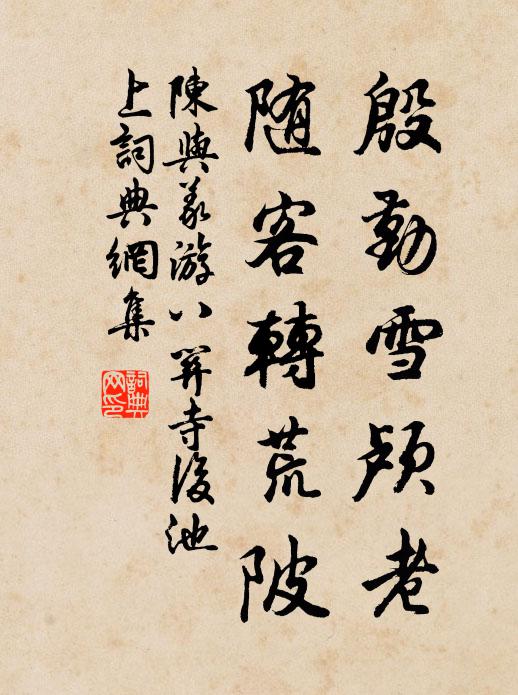 殷勤雪颅老
随客轉荒陂
陳與義游八關寺後池
上詞典網集
詞典网印